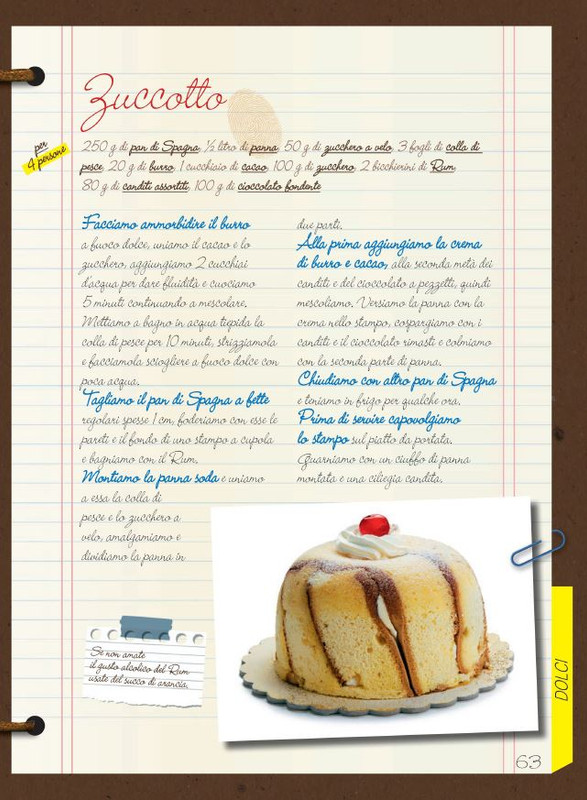 Zuccotto
per
4 persone
250 g di pan di Spagna, ½ litro di panna, 50 g di zucchero a velo, 3 fogli di colla di
pesce, 20 g di burro, 1 cucchiaio di cacao, 100 g di zucchero, 2 bicchierini di Rum
80 g di canditi assortiti, 100 g di cioccolato fondente
Facciamo ammorbidire il burro
a fuoco dolce, uniamo il cacao e lo
zucchero, aggiungiamo 2 cucchiai
d'acqua per dare fluidità e cuociamo
5 minuti continuando a mescolare.
Mettiamo a bagno in acqua tiepida la
colla di pesce per 10 minuti, strizziamola
e facciamola sciogliere a fuoco dolce con
poca acqua.
Tagliamo il pan di Spagna a fette
regolari spesse 1 cm, foderiamo con esse le
pareti e il fondo di uno stampo a cupola
e bagniamo con il Rum.
Montiamo la panna soda e uniamo
a essa la colla di
pesce e lo zucchero a
velo, amalgamiamo e
dividiamo la panna in
due parti.
Alla prima aggiungiamo la crema
di burro e cacao, alla seconda metà dei
canditi e del cioccolato a pezzetti, quindi
mescoliamo. Versiamo la panna con la
crema nello stampo, cospargiamo con i
canditi e il cioccolato rimasti e colmiamo
con la seconda parte di panna.
Chiudiamo con altro pan di Spagna
e teniamo in frigo per qualche ora.
Prima di servire capovolgiamo
lo stampo sul piatto da portata.
Guarniamo con un ciuffo di panna
montata e una ciliegia candita.
Se non amate
il gusto alcolico del Rum
usate del succo di arancia.
DOLCI
63